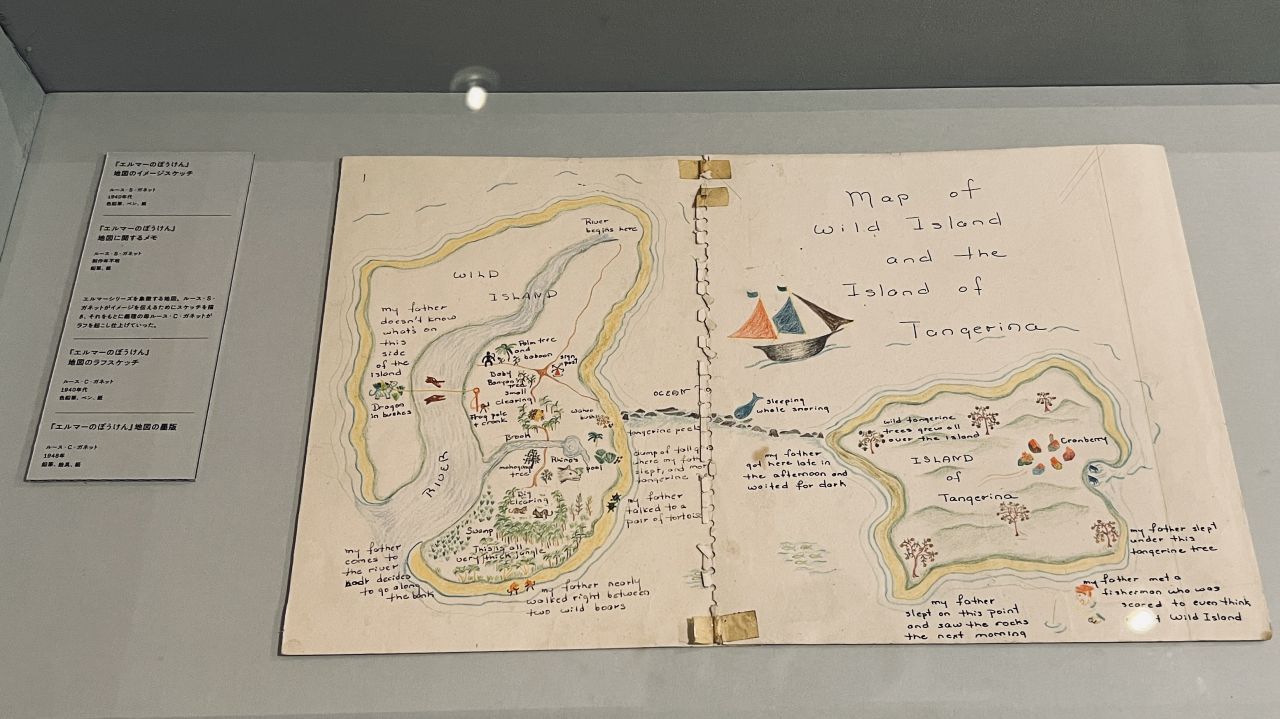 『エルマーのぼうけん』
地図のイメージスケッチ
ルース・S・ガネット
1940年代
色鉛筆、ペン、紙
『エルマーのぼうけん』
地図に関するメモ
ルース・S・ガネット
制作年不明
鉛筆、紙
エルマーシリーズを象徴する地図。ルース・S・
ガネットがイメージを伝えるためにスケッチを描
き、それをもとに義理の母ルース・C・ガネットが
ラフを起こし仕上げていった。
『エルマーのぼうけん』
地図のラフスケッチ
ルース・C・ガネット
1940年代
色鉛筆、ペン、紙
『エルマーのぼうけん』地図の墨版
ルース・C・ガネット
1948年
鉛筆、絵具、紙
1
River
begins here
WILD
ISLAND
my father
doesn't know
what's on
this
side
of the
island
Dragon
in bushes
Palm tree
and
baboon
sign
post
Baby
Banyan
tree
small
clearing
Frog pole
+ crank
Wahoo
bushes
Brook
mahogany
tree
Rhino's
pool
Big
clearing
RIVER
Swamp
This is all
very thick jungle
my father
comes to
the river
decides
to go along
the bank
my father nearly
walked right between
two wild boars
my father
talked to a
pair of tortois
OCEAN
tangerine peels
clump of tall g
where my fath
slept, and
tangerine
Map of
Wild Island
and the
Island of
Tangerina
sleeping
whale snoring
my father
got here late in
the afternoon and
waited for dark
wild tangerine
trees grew all
over the island
ISLAND
of
Tangerina
Cranberry
my father slept
under this
tangerine tree
my father met a
fisherman who was
scared to even think
Wild Island
my father
slept on this point
and saw the rocks
the next morning